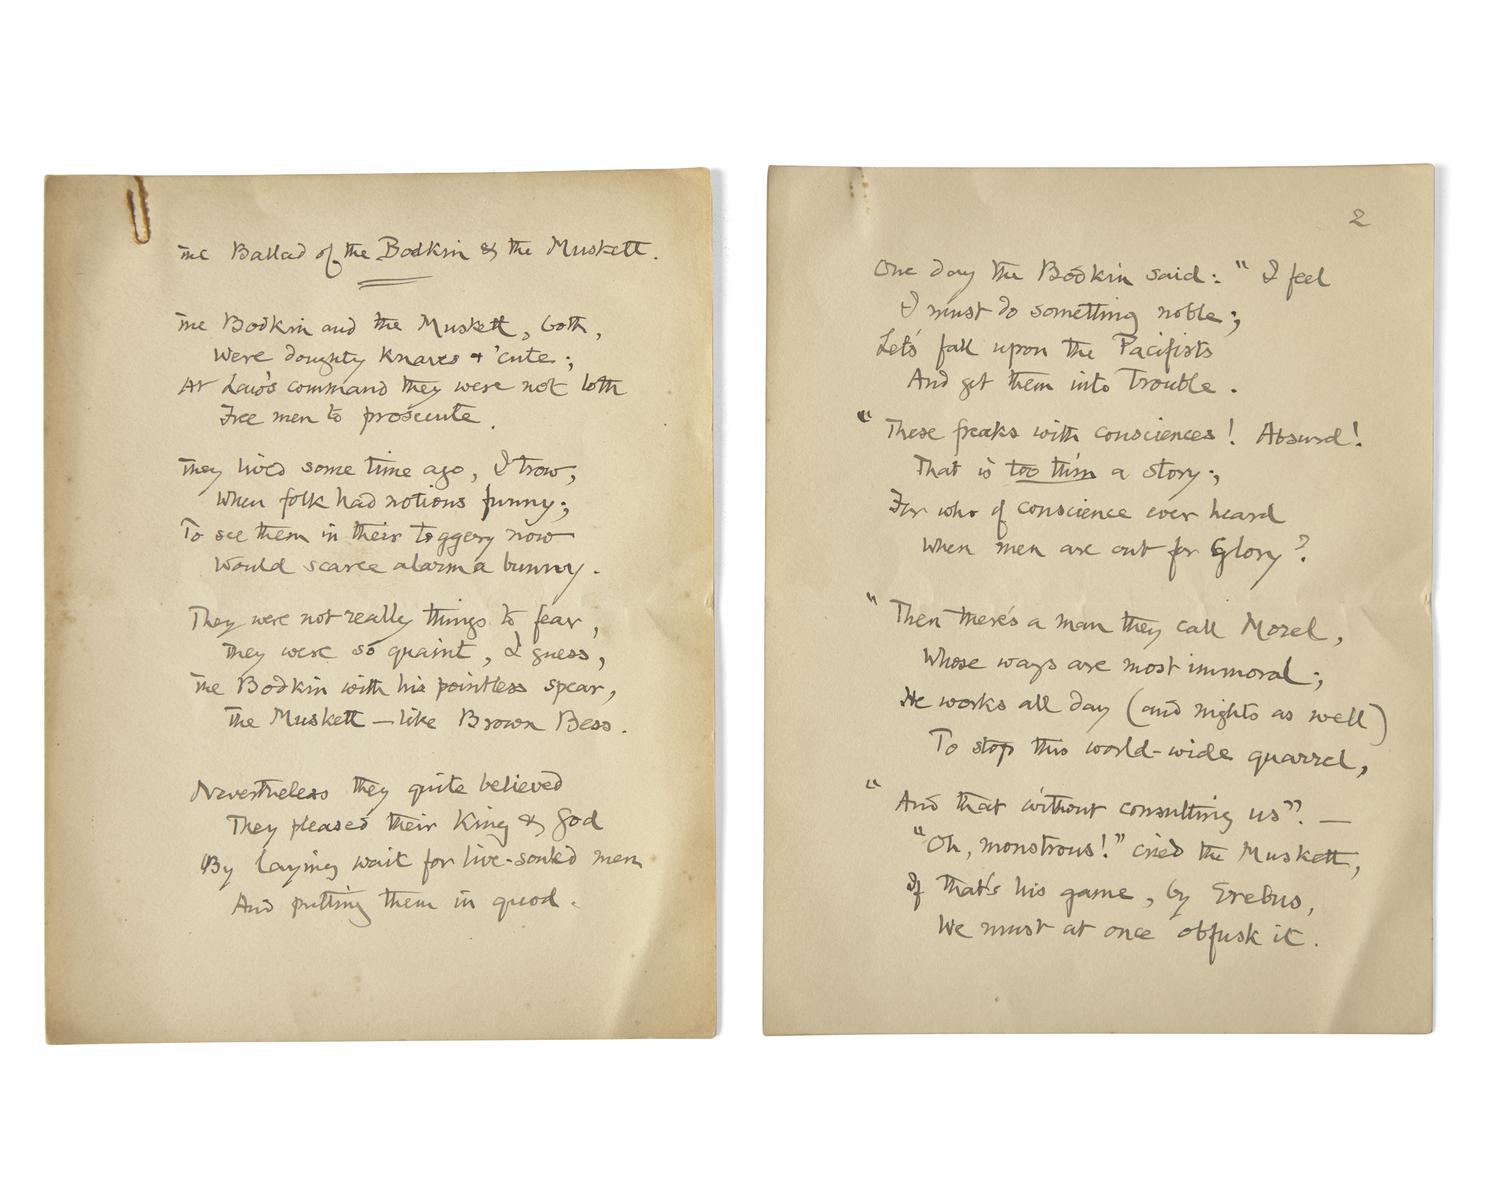 The Ballad of the Bodkin & the Muskett.
The Bodkin and the Muskett, both,
Were doughty knaves & 'cute;
At Law's command they were not loth
Free men to prosecute.
They lived some time ago, I trow,
When folk had notions funny;
To see them in their toggery now
Would scarce alarm a bunny.
They were not really things to fear,
They were so quaint, I guess,
The Bodkin with his pointless spear,
The Muskett — like Brown Bess.
Nevertheless they quite believed
They pleased their King & God
By laying wait for live-soul'd men
And putting them in quod.
2
One day the Bodkin said: "I feel
I must do something noble;
Let's fall upon the Pacifists
And get them into Trouble.
"These freaks with consciences! Absurd!
That is too thin a story;
For who of conscience ever heard
When men are out for Glory?
"Then there's a man they call Morel,
Whose ways are most immoral;
He works all day (and nights as well)
To stop this world-wide quarrel,
"And that without consulting us"? —
"Oh, monstrous!" cried the Muskett,
If that's his game, by Erebus,
We must at once obfusk it.